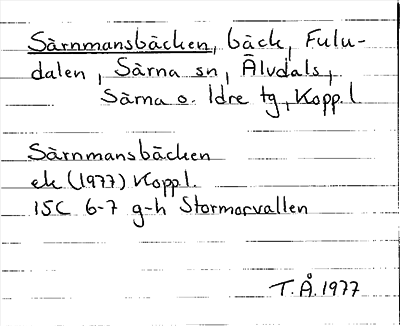 Särnmansbäcken, bäck, Fulu-
dalen, Särna sn, Älvdals,
Särna o. Idre tg, Kopp.l
Särnmansbäcken
ek (1977) Koppl.
15C 6-7 g-h Stormorvallen
T.Å.1977